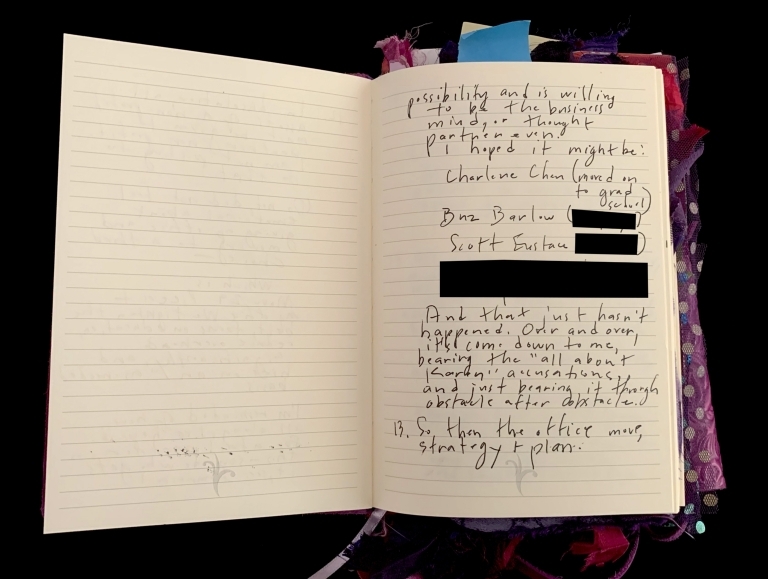 possibility and is willing
to be the business
mind, or thought
partner even.
I hoped it might be:
Charlene Chen (moved on
to grad
school)
Bnz Barlow (
Scott Eustace )
And that just hasn't
happened. Over and over,
it's come down to me,
bearing the "all about
Karen" accusations,
and just bearing it through
obstacle after obstacle.
13. So then the office move,
strategy + plan: